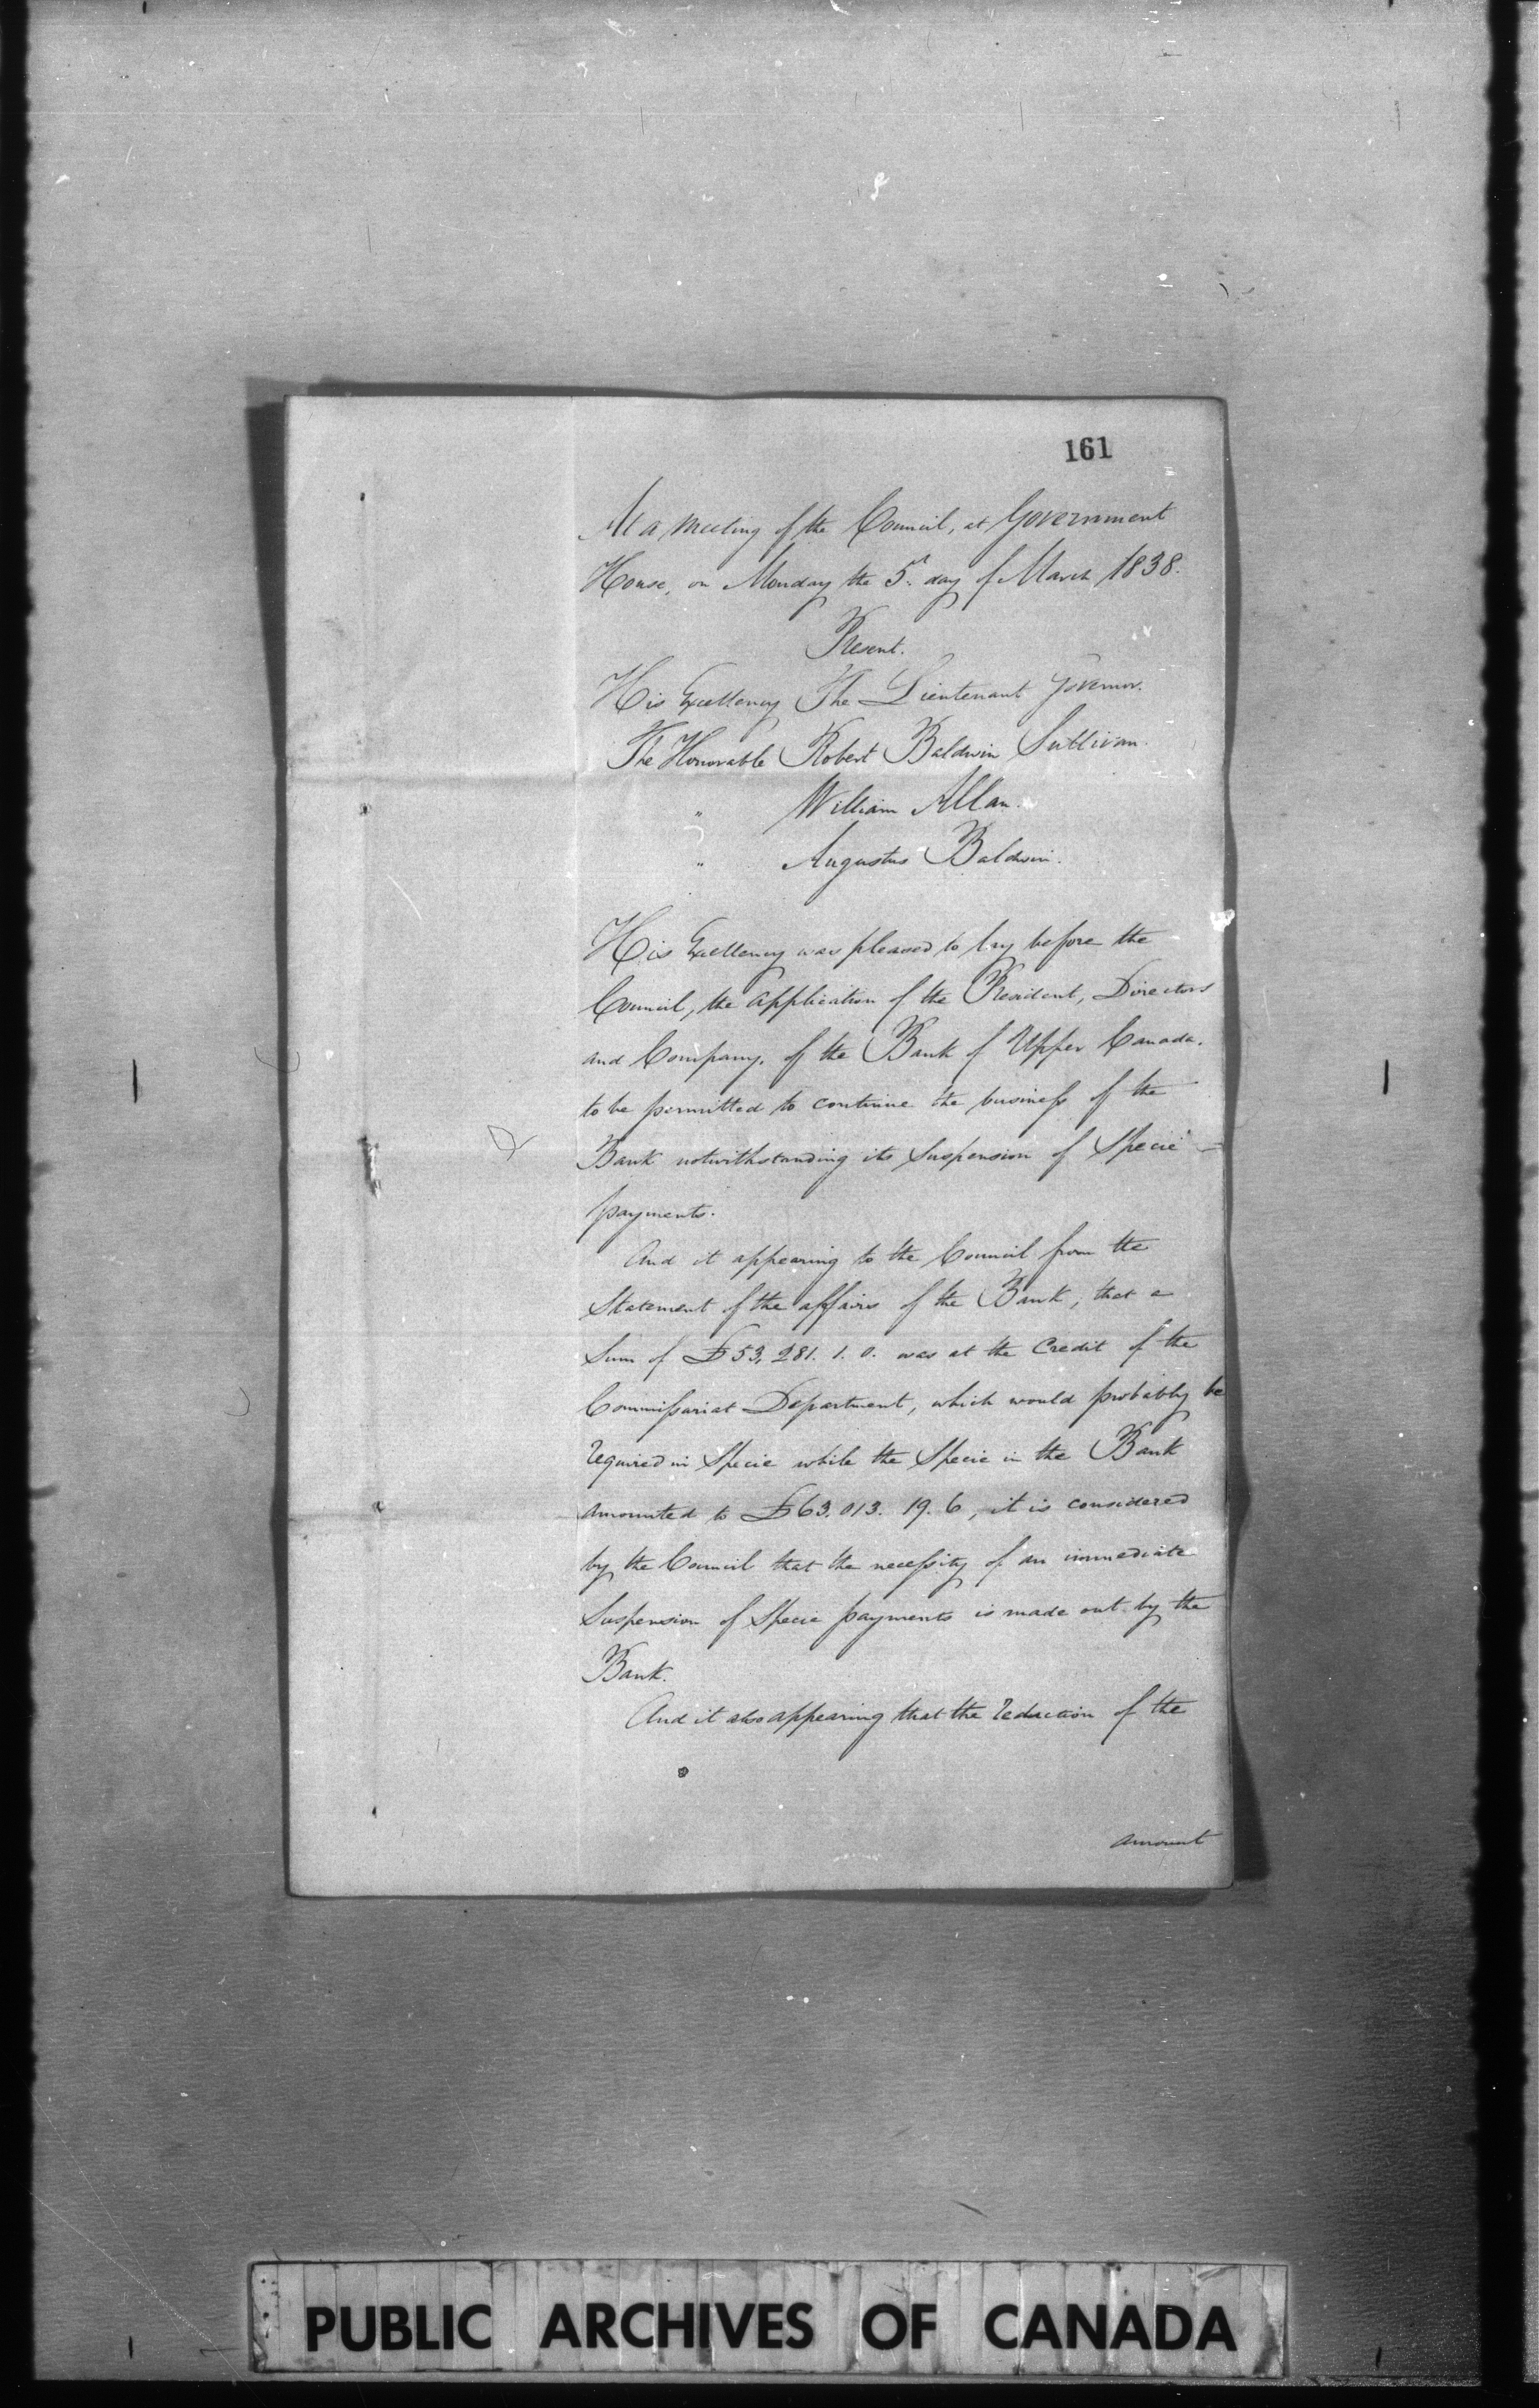 161
At a meeting of the Council, at Government
House, on Monday the 5th day of March 1838.
Present.
His Excellency The Lieutenant Governor.
The Honorable Robert Baldwin Sullivan.
" William Allan.
" Augustus Baldwin.
His Excellency was pleased to lay before the
Council, the application of the President, Directors
and Company, of the Bank of Upper Canada.
to be permitted to continue the business of the
Bank notwithstanding its Suspension of Specie
payments.
And it appearing to the Council from the
Statement of the affairs of the Bank, that a
Sum of £53,281. 1. 0. was at the Credit of the
Commissariat Department, which would probably be
required in Specie while the Specie in the Bank
amounted to £63,013. 19. 6, it is considered
by the Council that the necessity of an immediate
Suspension of Specie payments is made out by the
Bank.
And it also appearing that the reduction of the
amount
PUBLIC ARCHIVES OF CANADA